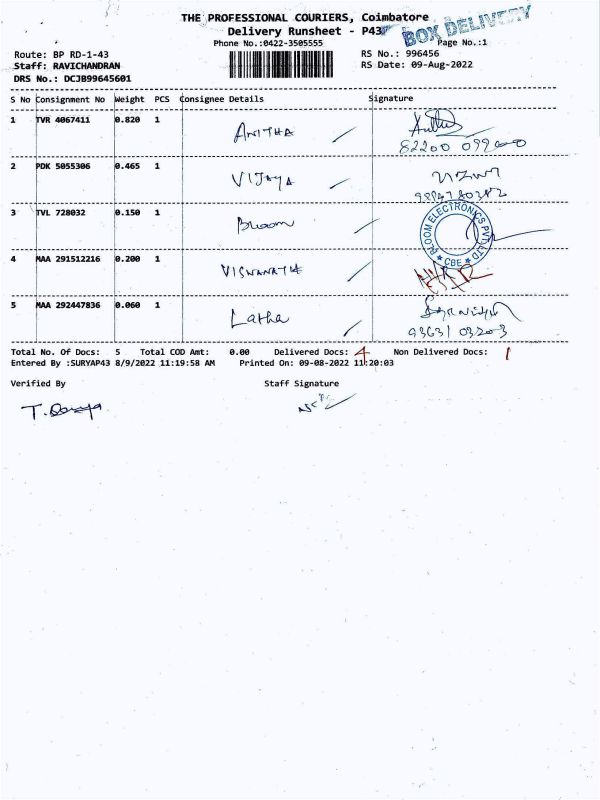 THE PROFESSIONAL COURIERS, Coimbatore
BOX DELIVERY
Delivery Runsheet - P43
Phone No.:0422-3505555
Page No.:1
Route: BP RD-1-43
RS No.: 996456
Staff: RAVICHANDRAN
RS Date: 09-Aug-2022
DRS No.: DCJB99645601
S No Consignment No Weight PCS Consignee Details Signature
1 TVR 4067411 0.820 1
ANITHA
82200 09200
2 PDK 5055306 0.465 1
VIJAYA
3 TVL 728032 0.150 1
Bloom
BLOOM ELECTRONICS PVT LTD
★ CBE ★
4 MAA 291512216 0.200 1
VISWANATH
5 MAA 292447836 0.060 1
Latha
93631 03203
Total No. Of Docs: 5 Total COD Amt: 0.00 Delivered Docs: 4 Non Delivered Docs: 1
Entered By :SURYAP43 8/9/2022 11:19:58 AM Printed On: 09-08-2022 11:20:03
Verified By Staff Signature